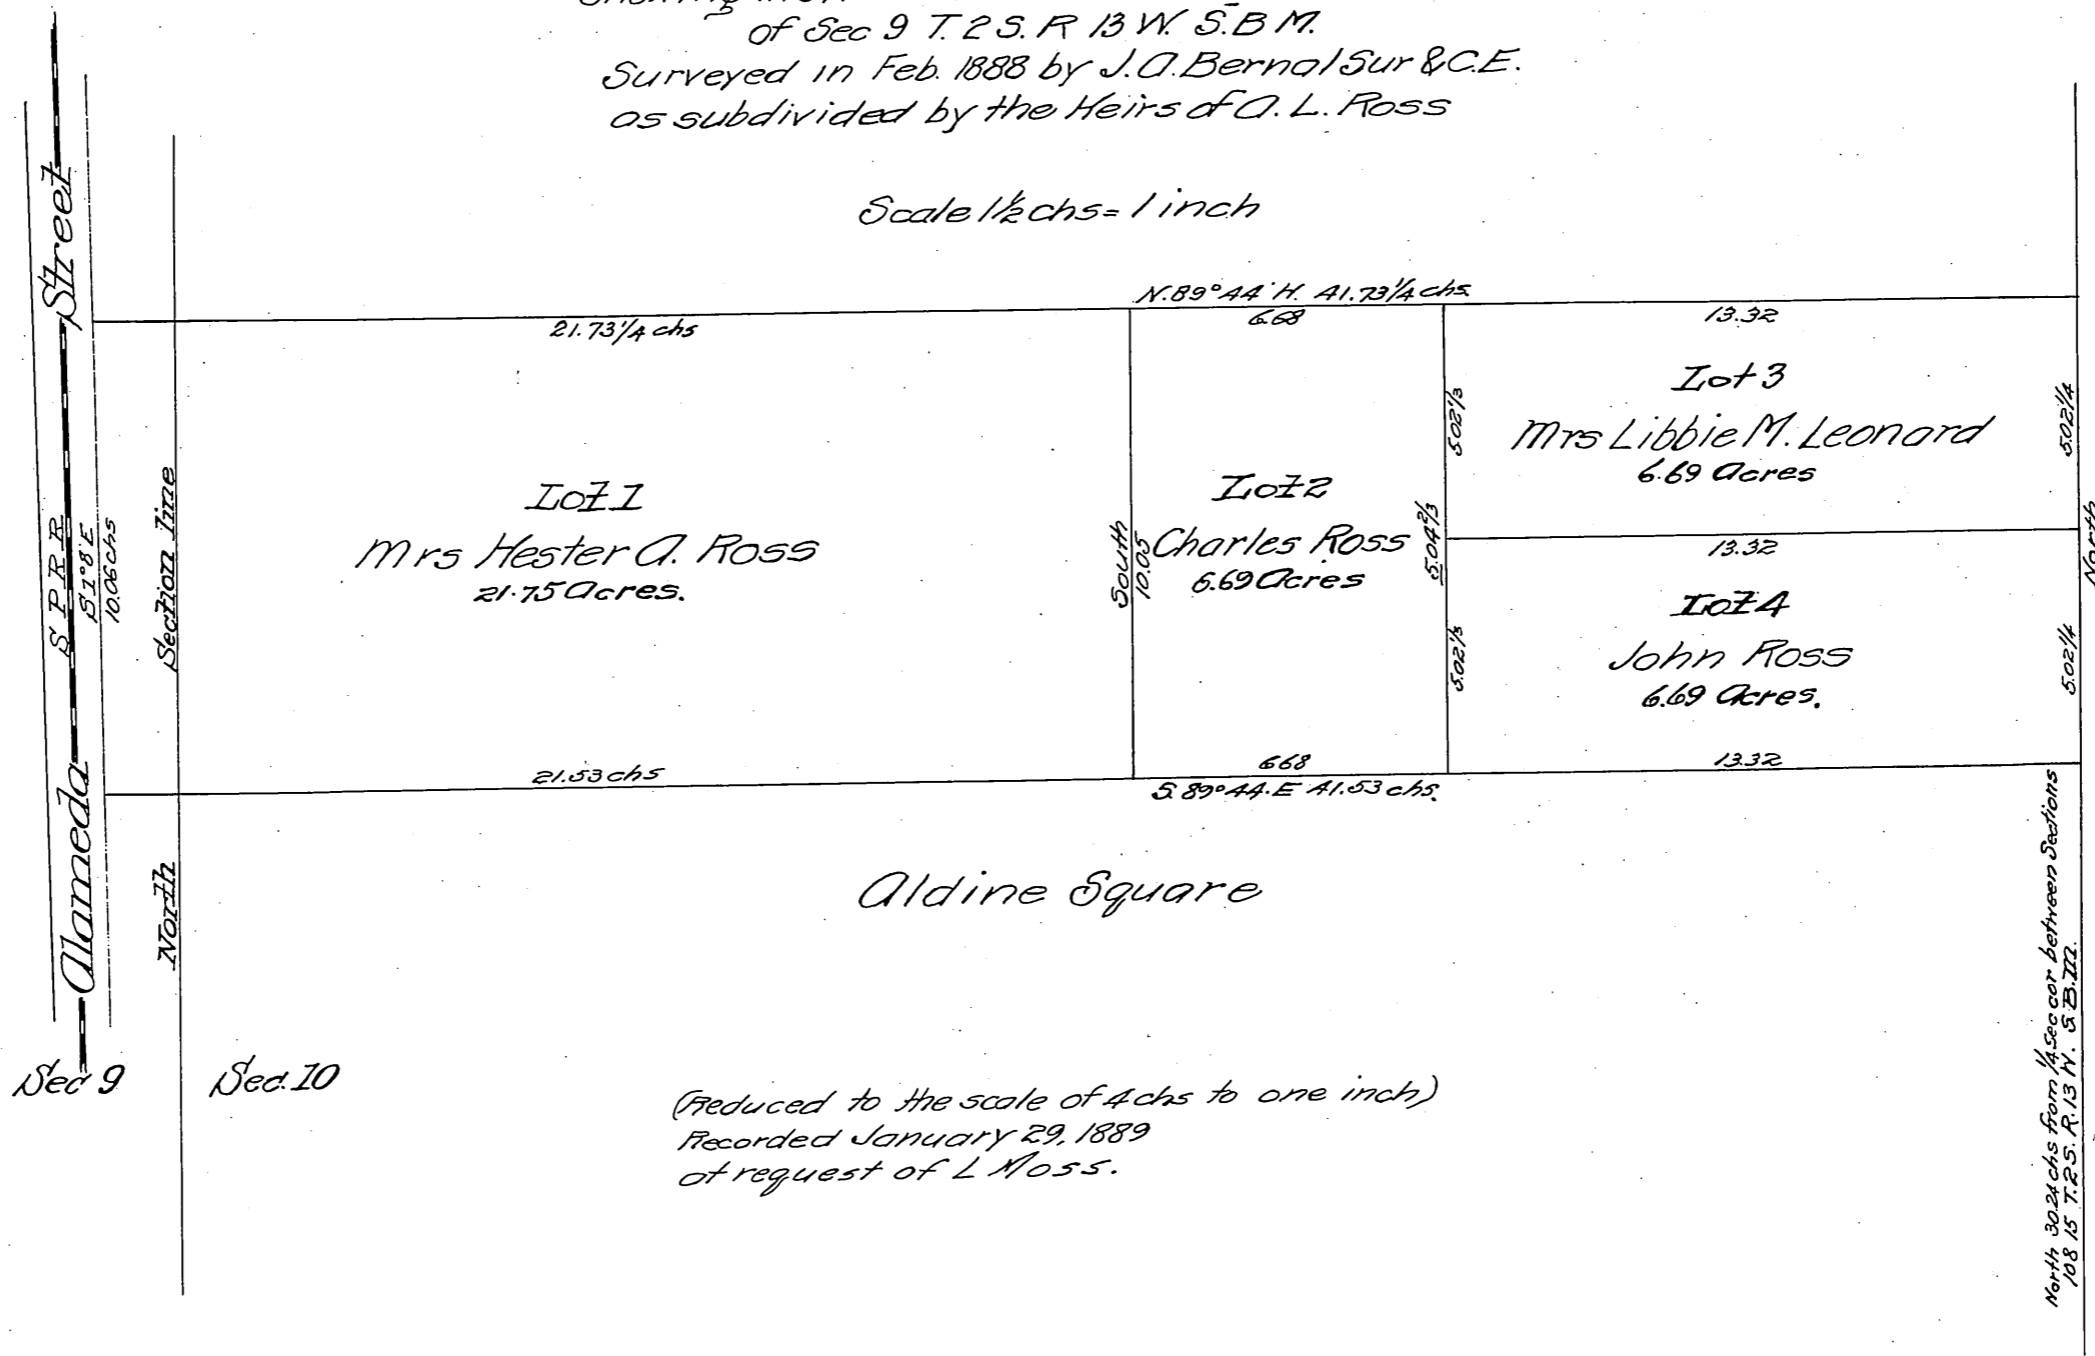 of Sec 9 T. 2 S. R 13 W. S.B M.
Surveyed in Feb. 1888 by J.A. Bernal Sur & C.E.
as subdivided by the Heirs of A. L. Ross
Scale 1½ chs = 1 inch
N. 89° 44' W. 41.73¼ chs.
21.73¼ chs
6.68
13.32
Street
Alameda
S P R R
S 1° 8' E
10.06 chs
Section Line
North
Lot 1
Mrs Hester A. Ross
21.75 Acres.
South
10.05
Lot 2
Charles Ross
6.69 Acres
5.02⅓
5.04⅔
5.02⅓
Lot 3
Mrs Libbie M. Leonard
6.69 Acres
5.02¼
13.32
North
Lot 4
John Ross
6.69 Acres.
5.02¼
21.53 chs
6.68
13.32
S. 89° 44. E 41.53 chs.
Aldine Square
Sec 9
Sec. 10
(Reduced to the scale of 4 chs to one inch)
Recorded January 29, 1889
at request of L Moss.
North 30.24 chs from ¼ sec cor between Sections
10 & 15 T. 2 S. R. 13 W. S. B. M.